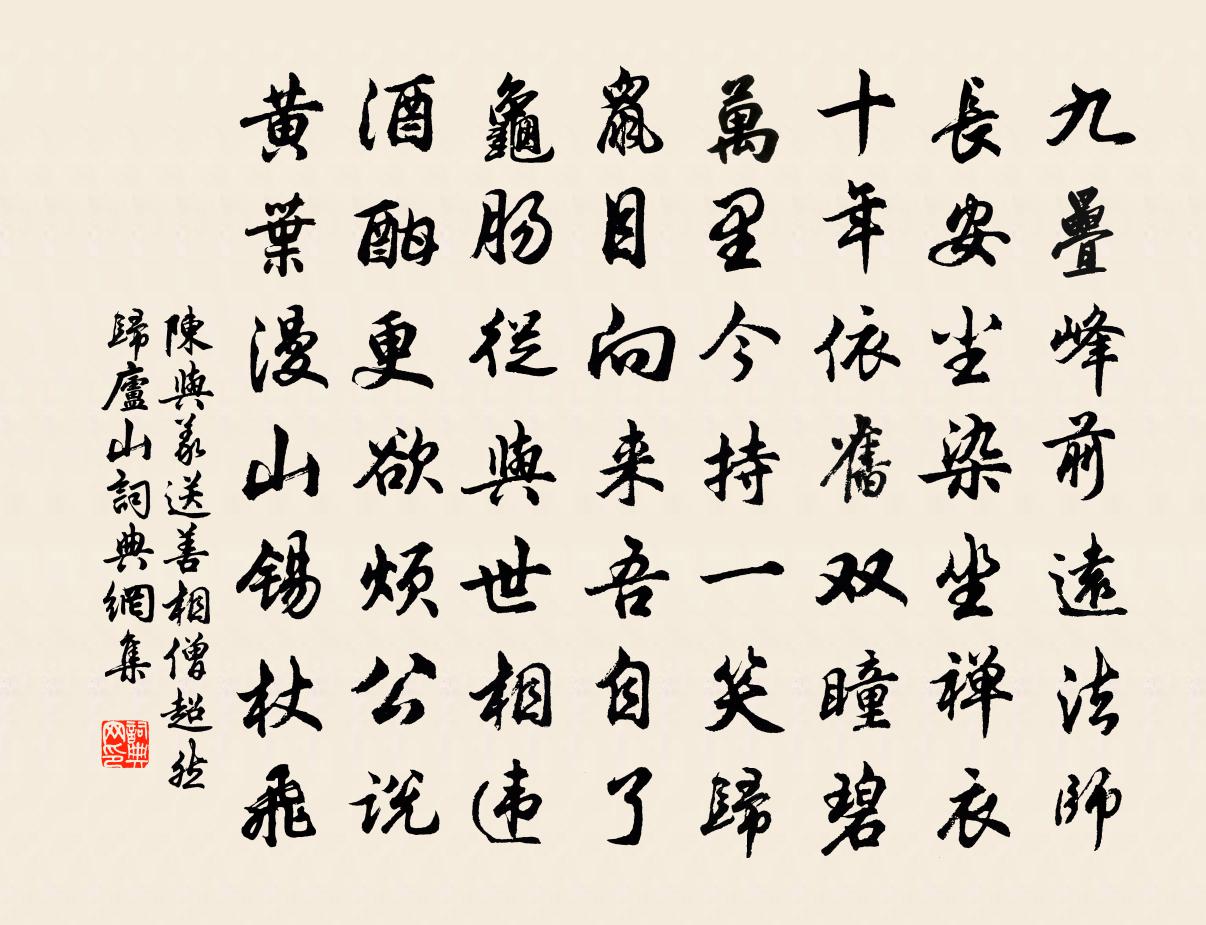 九疊峰前遠法師
長安尘染坐禅衣
十年依舊双瞳碧
萬里今持一笑歸
鼠目向来吾自了
龜肠從與世相违
酒酣更欲烦公说
黄葉漫山锡杖飛
陳與義送善相僧超然
歸廬山詞典網集
詞典网印